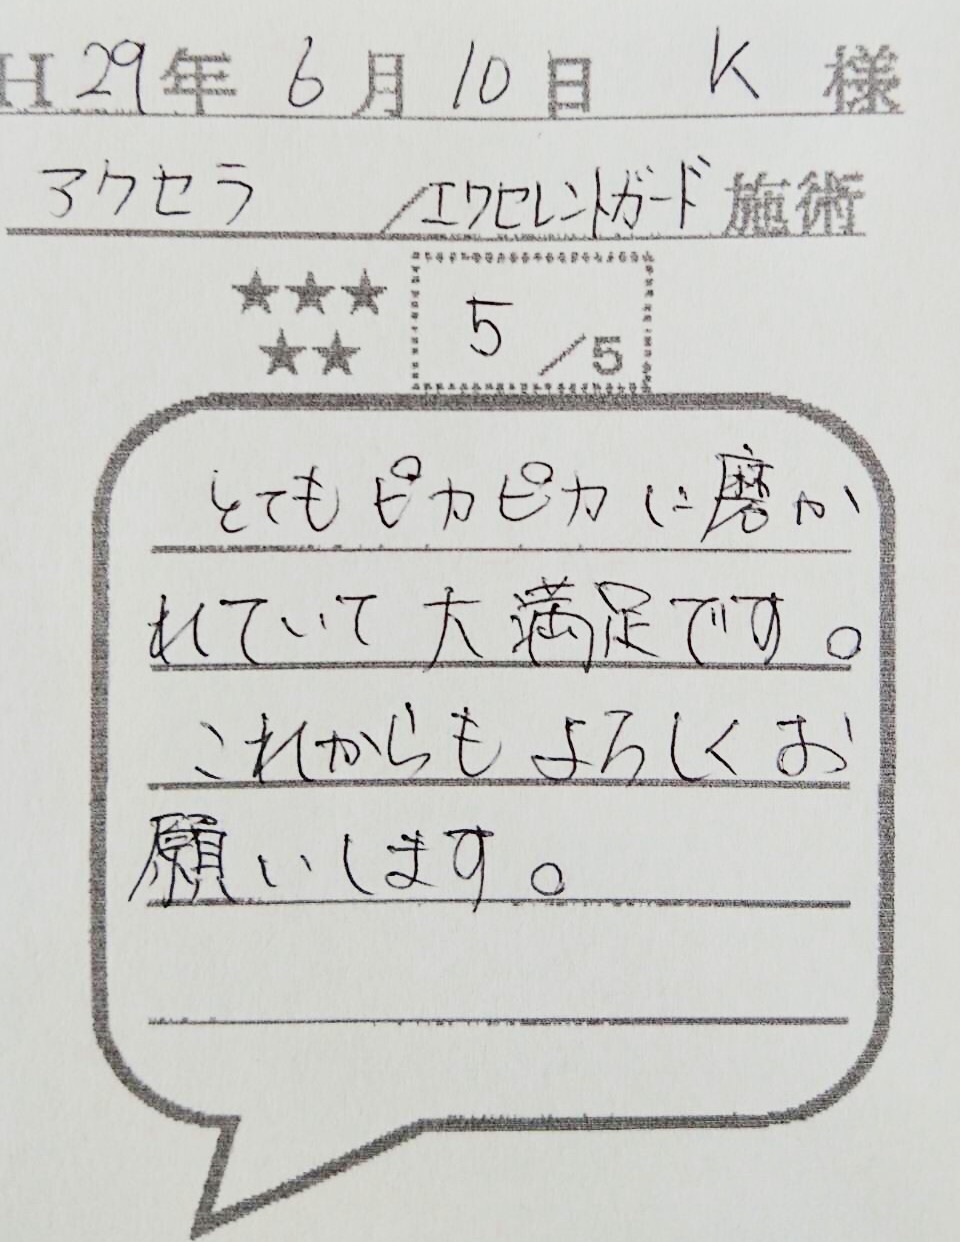 H29年 6月10日 K 様
アクセラ/エクセレントガード施術
★★★
★★
5/5
とてもピカピカに磨か
れていて大満足です。
これからもよろしくお
願いします。